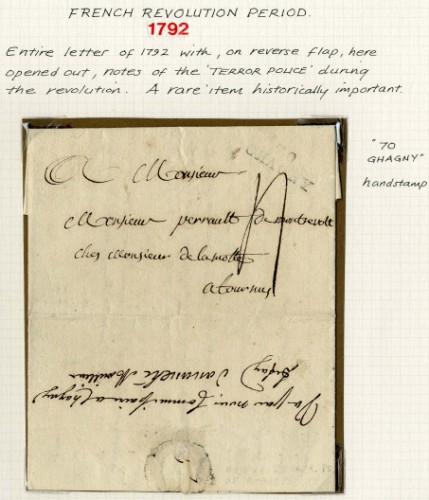 FRENCH REVOLUTION PERIOD.
1792
Entire letter of 1792 with, on reverse flap, here
opened out, notes of the 'TERROR POLICE' during
the revolution. A rare item historically important.
"70
GHAGNY"
handstamp
A Monsieur
Monsieur perrault de montrevolt
ches Monsieur de lamotte
a tournus